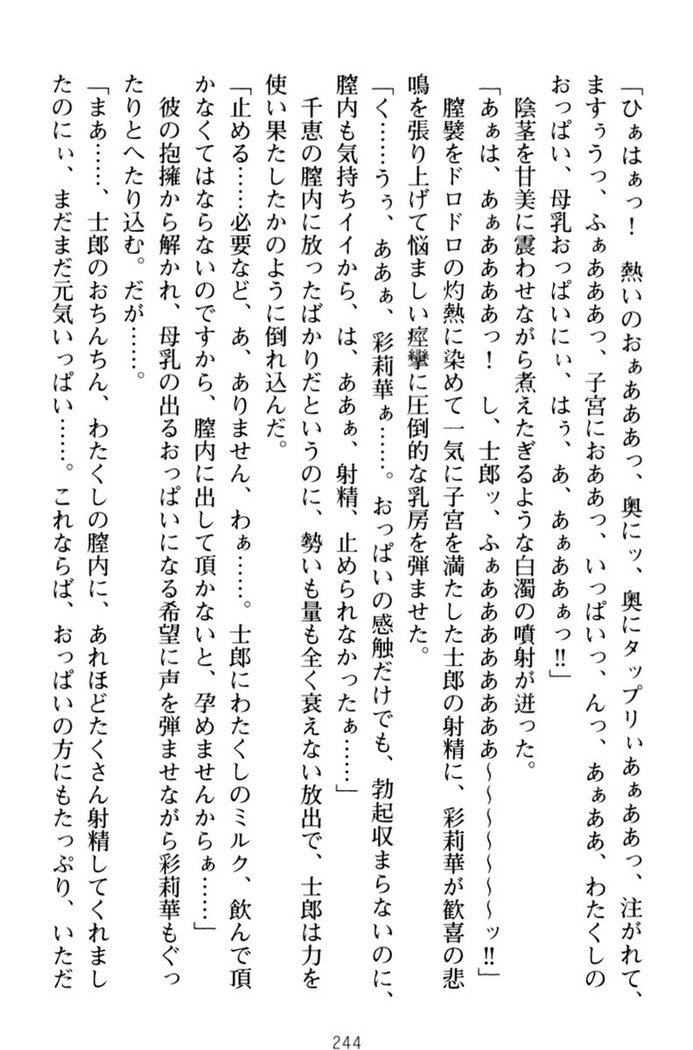 「ひぁはぁっ！　熱いのおぁあああっ、奥にッ、奥にタップリぃあぁああっ、注がれて、
ますぅうっ、ふぁあああっ、子宮におああっ、いっぱいっ、んっ、あぁああ、わたくしの
おっぱい、母乳おっぱいにぃ、はぅ、あ、あぁああぁっ!!」
陰茎を甘美に震わせながら煮えたぎるような白濁の噴射が迸った。
「あぁは、あぁああああっ！　し、士郎ッ、ふぁああああああああ～～～～～～～ッ!!」
膣襞をドロドロの灼熱に染めて一気に子宮を満たした士郎の射精に、彩莉華が歓喜の悲
鳴を張り上げて悩ましい痙攣に圧倒的な乳房を弾ませた。
「く……うぅ、ああぁ、彩莉華ぁ……。おっぱいの感触だけでも、勃起収まらないのに、
膣内も気持ちイイから、は、ああぁ、射精、止められなかったぁ……」
千恵の膣内に放ったばかりだというのに、勢いも量も全く衰えない放出で、士郎は力を
使い果たしたかのように倒れ込んだ。
「止める……必要など、あ、ありません、わぁ……。士郎にわたくしのミルク、飲んで頂
かなくてはならないのですから、膣内に出して頂かないと、孕めませんからぁ……」
彼の抱擁から解かれ、母乳の出るおっぱいになる希望に声を弾ませながら彩莉華もぐっ
たりとへたり込む。だが……。
「まあ……、士郎のおちんちん、わたくしの膣内に、あれほどたくさん射精してくれまし
たのにぃ、まだまだ元気いっぱい……。これならば、おっぱいの方にもたっぷり、いただ
244